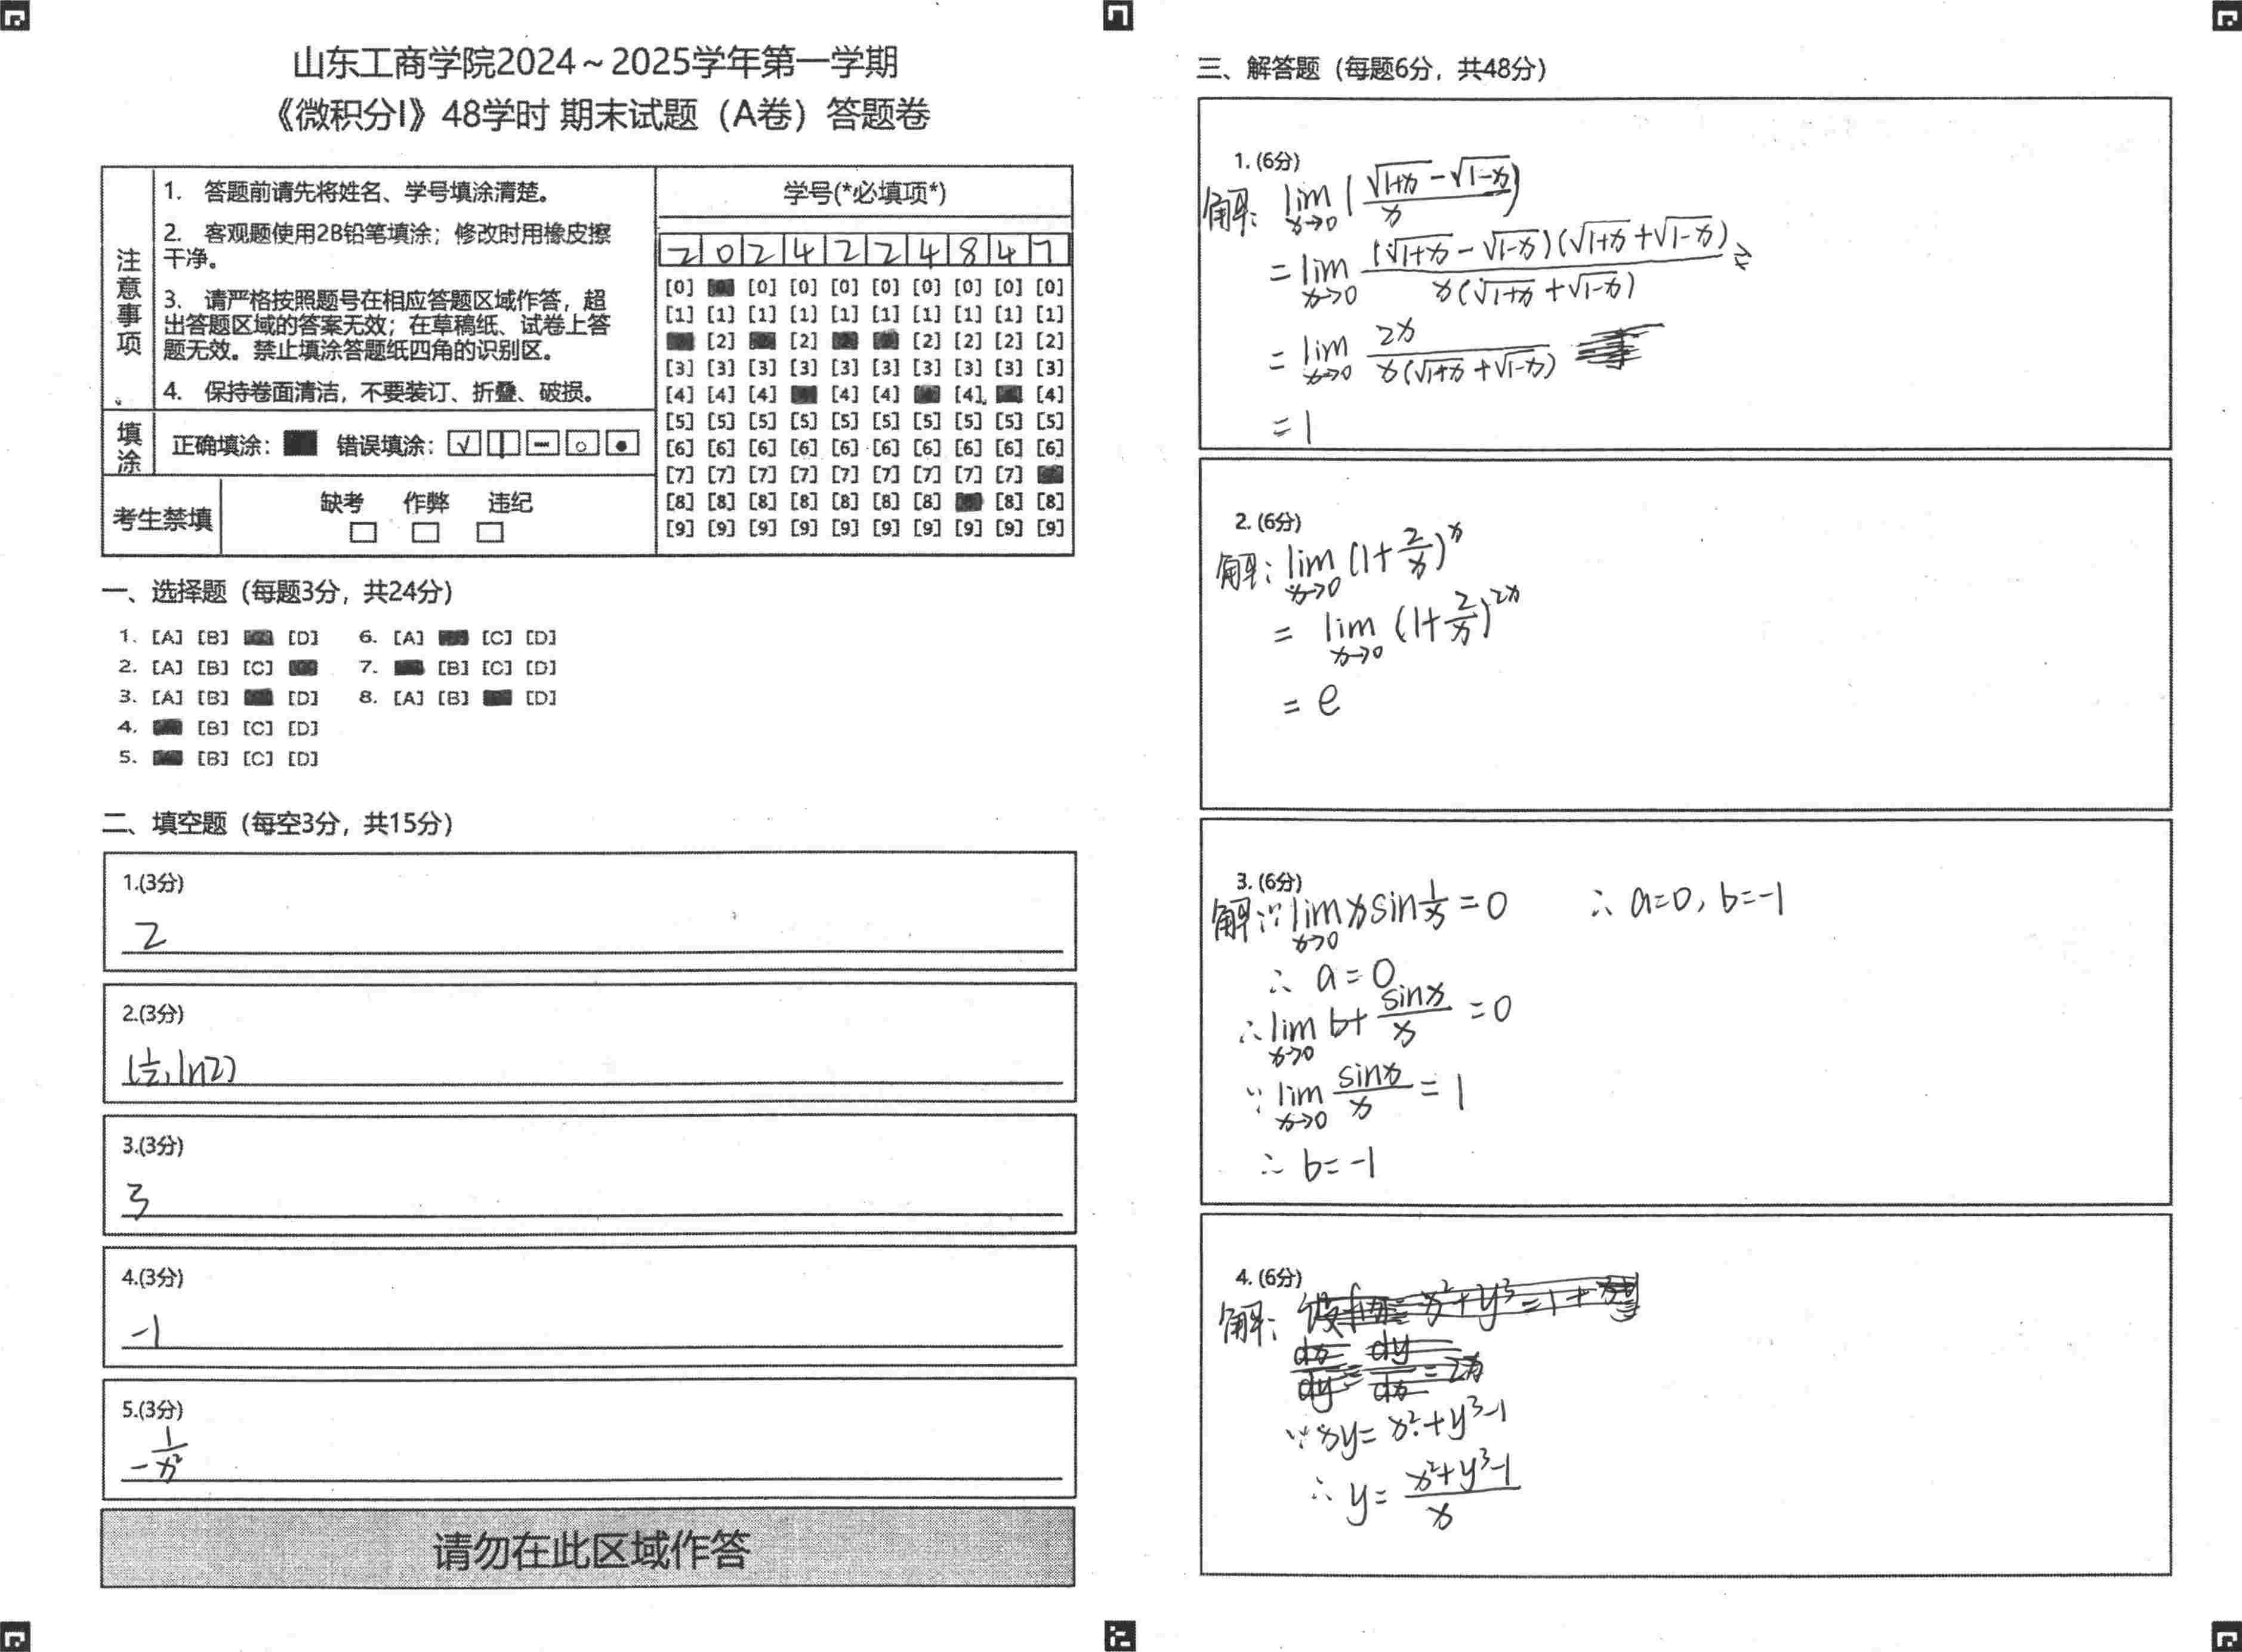 山东工商学院2024~2025学年第一学期
《微积分I》48学时 期末试题（A卷）答题卷
注意事项
1. 答题前请先将姓名、学号填涂清楚。
2. 客观题使用2B铅笔填涂；修改时用橡皮擦
干净。
3. 请严格按照题号在相应答题区域作答，超
出答题区域的答案无效；在草稿纸、试卷上答
题无效。禁止填涂答题纸四角的识别区。
4. 保持卷面清洁，不要装订、折叠、破损。
填涂
正确填涂： 错误填涂：
考生禁填
缺考 作弊 违纪
学号(*必填项*)
2 0 2 4 2 2 4 8 4 7
[0] [0] [0] [0] [0] [0] [0] [0] [0]
[1] [1] [1] [1] [1] [1] [1] [1] [1] [1]
[2] [2] [2] [2] [2] [2]
[3] [3] [3] [3] [3] [3] [3] [3] [3] [3]
[4] [4] [4] [4] [4] [4] [4]
[5] [5] [5] [5] [5] [5] [5] [5] [5] [5]
[6] [6] [6] [6] [6] [6] [6] [6] [6] [6]
[7] [7] [7] [7] [7] [7] [7] [7] [7]
[8] [8] [8] [8] [8] [8] [8] [8] [8]
[9] [9] [9] [9] [9] [9] [9] [9] [9] [9]
一、选择题（每题3分，共24分）
1. [A] [B] [D] 6. [A] [C] [D]
2. [A] [B] [C] 7. [B] [C] [D]
3. [A] [B] [D] 8. [A] [B] [D]
4. [B] [C] [D]
5. [B] [C] [D]
二、填空题（每空3分，共15分）
1.(3分)
2
2.(3分)
(1/2, ln2)
3.(3分)
3
4.(3分)
-1
5.(3分)
-1/x²
请勿在此区域作答
三、解答题（每题6分，共48分）
1. (6分)
解: lim x→0 (√1+x - √1-x)/x)
= lim x→0 (√1+x - √1-x)(√1+x + √1-x) / x(√1+x + √1-x)
= lim x→0 2x / x(√1+x + √1-x)
= 1
2. (6分)
解: lim x→0 (1+2/x)^x
= lim x→0 (1+2/x)^2x
= e
3. (6分)
解: ∵ lim x→0 x sin 1/x = 0 ∴ a=0, b=-1
∴ a = 0
∴ lim x→0 b+ sinx/x = 0
∵ lim x→0 sinx/x = 1
∴ b= -1
4. (6分)
解:
∵ xy = x²+y³-1
∴ y = (x²+y³-1)/x